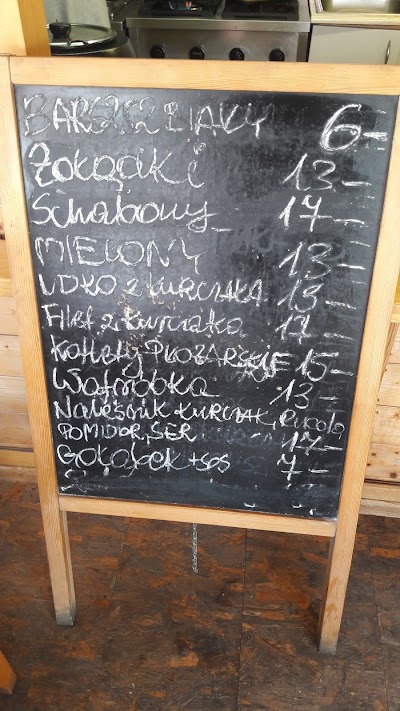 BARSZCZ BIAŁY 6-
Żołądki 13-
Schabowy 17-
MIELONY 13-
UDKO Z KURCZAKA 13-
Filet z kurczaka 17-
Kotlety POŻARSKIE 15-
Wątróbka 13-
Naleśnik KURCZAK, Rukola
POMIDOR, SER 17-
Gołąbek + sos 7-